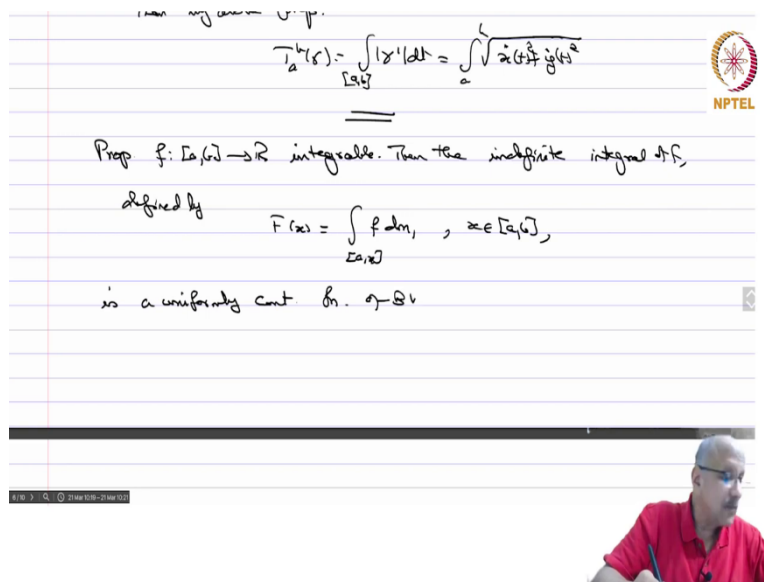 T_a^b(γ) = ∫_{[a,b]} |γ'| dt = ∫_a^b √(ẋ(t)² + ẏ(t)²)
NPTEL
Prop f: [a,b] → ℝ integrable. Then the indefinite integral of f,
defined by
F(x) = ∫_{[a,x]} f dm₁ , x ∈ [a,b],
is a uniformly cont. fn. of BV
6 / 10 21 Mar 10:19 - 21 Mar 10:21